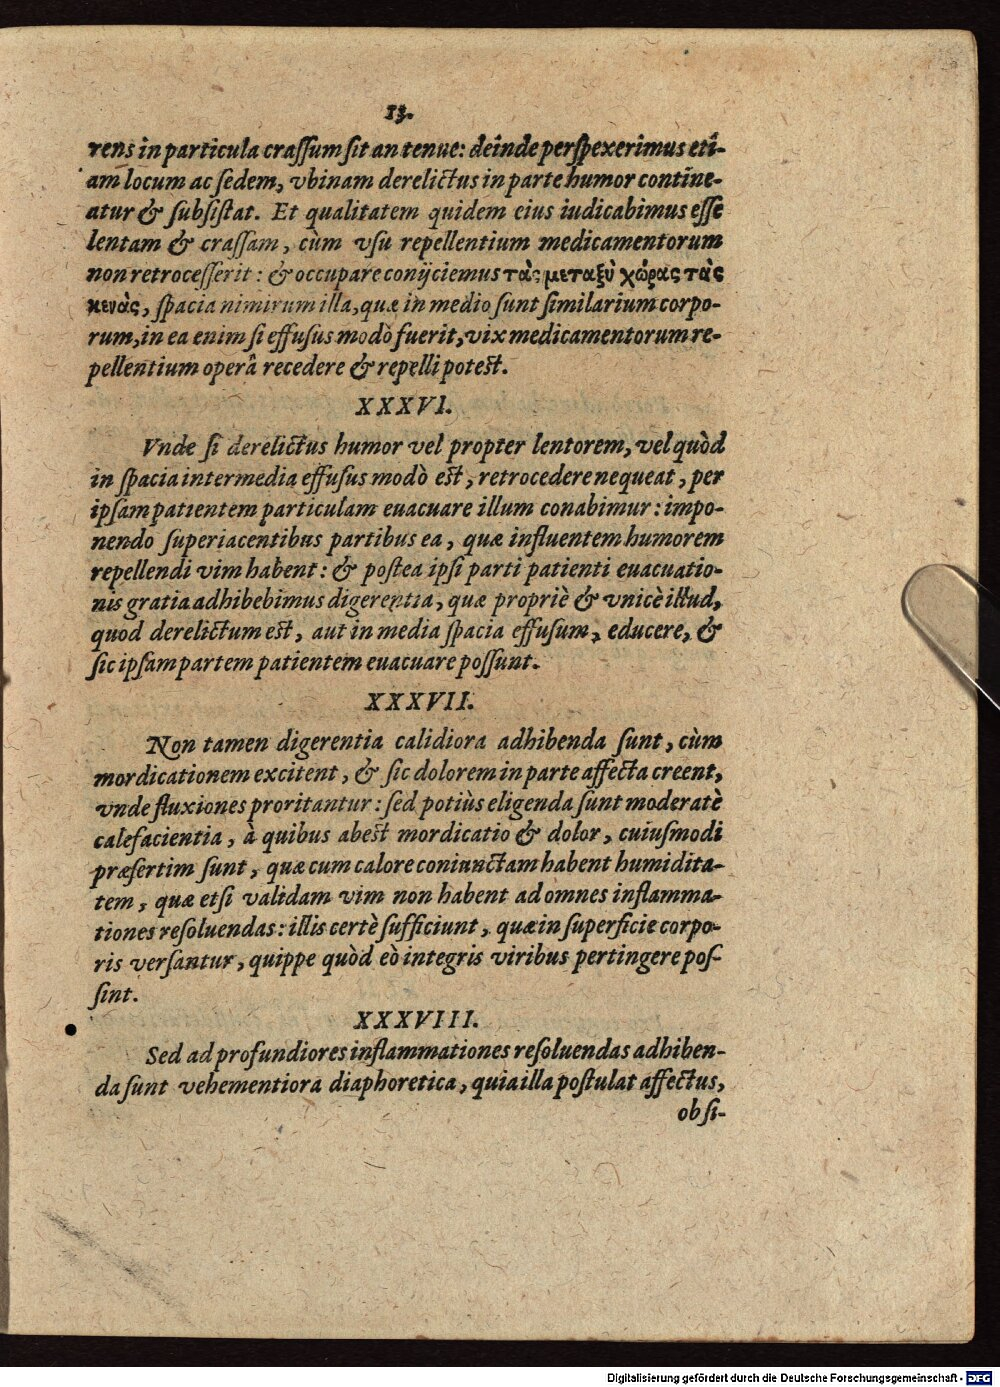 13.
rens in particula craſſum ſit an tenue: deinde perſpexerimus eti-
am locum ac ſedem, vbinam derelictus in parte humor contine-
atur & ſubſiſtat. Et qualitatem quidem eius iudicabimus eſſe
lentam & craſſam, cùm vſu repellentium medicamentorum
non retroceſſerit: & occupare conijciemus τὰς μεταξὺ χώρας τὰς
κενὰς, ſpacia nimirum illa, quæ in medio ſunt ſimilarium corpo-
rum, in ea enim ſi effuſus modò fuerit, vix medicamentorum re-
pellentium operâ recedere & repelli poteſt.
XXXVI.
Vnde ſi derelictus humor vel propter lentorem, vel quòd
in ſpacia intermedia effuſus modò eſt, retrocedere nequeat, per
ipſam patientem particulam euacuare illum conabimur: impo-
nendo ſuperiacentibus partibus ea, quæ influentem humorem
repellendi vim habent: & poſtea ipſi parti patienti euacuatio-
nis gratia adhibebimus digerentia, quæ propriè & vnicè illud,
quod derelictum eſt, aut in media ſpacia effuſum, educere, &
ſic ipſam partem patientem euacuare poſſunt.
XXXVII.
Non tamen digerentia calidiora adhibenda ſunt, cùm
mordicationem excitent, & ſic dolorem in parte affecta creent,
vnde fluxiones proritantur: ſed potiùs eligenda ſunt moderatè
calefacientia, à quibus abeſt mordicatio & dolor, cuiuſmodi
præſertim ſunt, quæ cum calore coniunctam habent humidita-
tem, quæ etſi validam vim non habent ad omnes inflamma-
tiones reſoluendas: illis certè ſufficiunt, quæ in ſuperficie corpo-
ris verſantur, quippe quòd eò integris viribus pertingere poſ-
ſint.
XXXVIII.
Sed ad profundiores inflammationes reſoluendas adhiben-
da ſunt vehementiora diaphoretica, quia illa poſtulat affectus,
ob ſi-
Digitalisierung gefördert durch die Deutsche Forschungsgemeinschaft - DFG